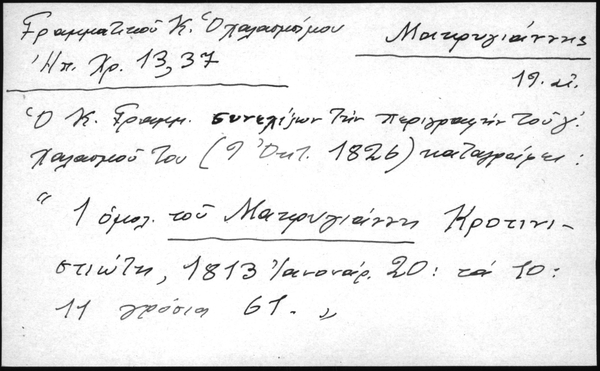 Γραμματικοῦ Κ. Ὁ χαλασμός μου
Μακρυγιάννης
Ἠπ. Χρ. 13, 37
19. αἰ.
Ὁ Κ. Γραμμ. συνεχίζων τὴν περιγραφὴν τοῦ γ'.
χαλασμοῦ του (9 Ὀκτ. 1826) καταγράφει :
" 1 ὁμολ. τοῦ Μακρυγιάννη Κροτινι-
στιώτη, 1813 Ἰανουάρ. 20 : τά 10 :
11 γρόσια 61. "